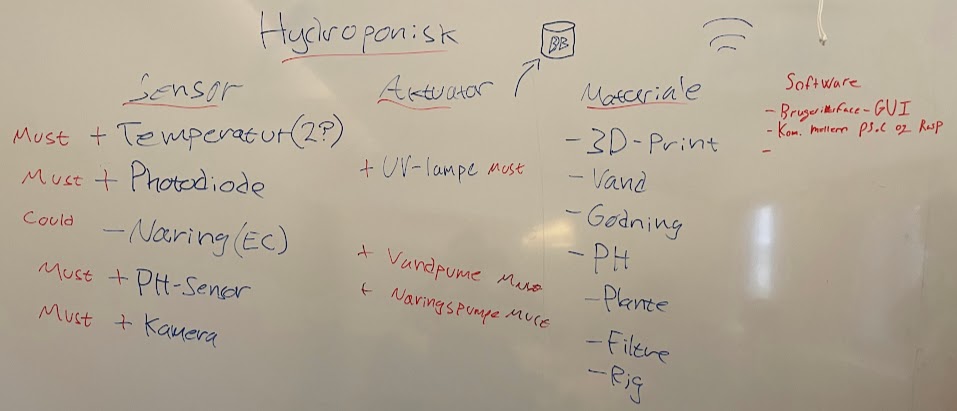 Hydroponisk
BB
Sensor
Must + Temperatur(2?)
Must + Photodiode
Could - Naring(EC)
Must + PH-Sensor
Must + Kamera
Aktuator
+ UV-lampe Must
+ Vandpume Must
+ Naringspumpe Must
Materiale
- 3D-Print
- Vand
- Godning
- PH
- Plante
- Filtre
- Rig
Software
- Brugerinterface - GUI
- Kom. mellem PSoC og Rasp
-